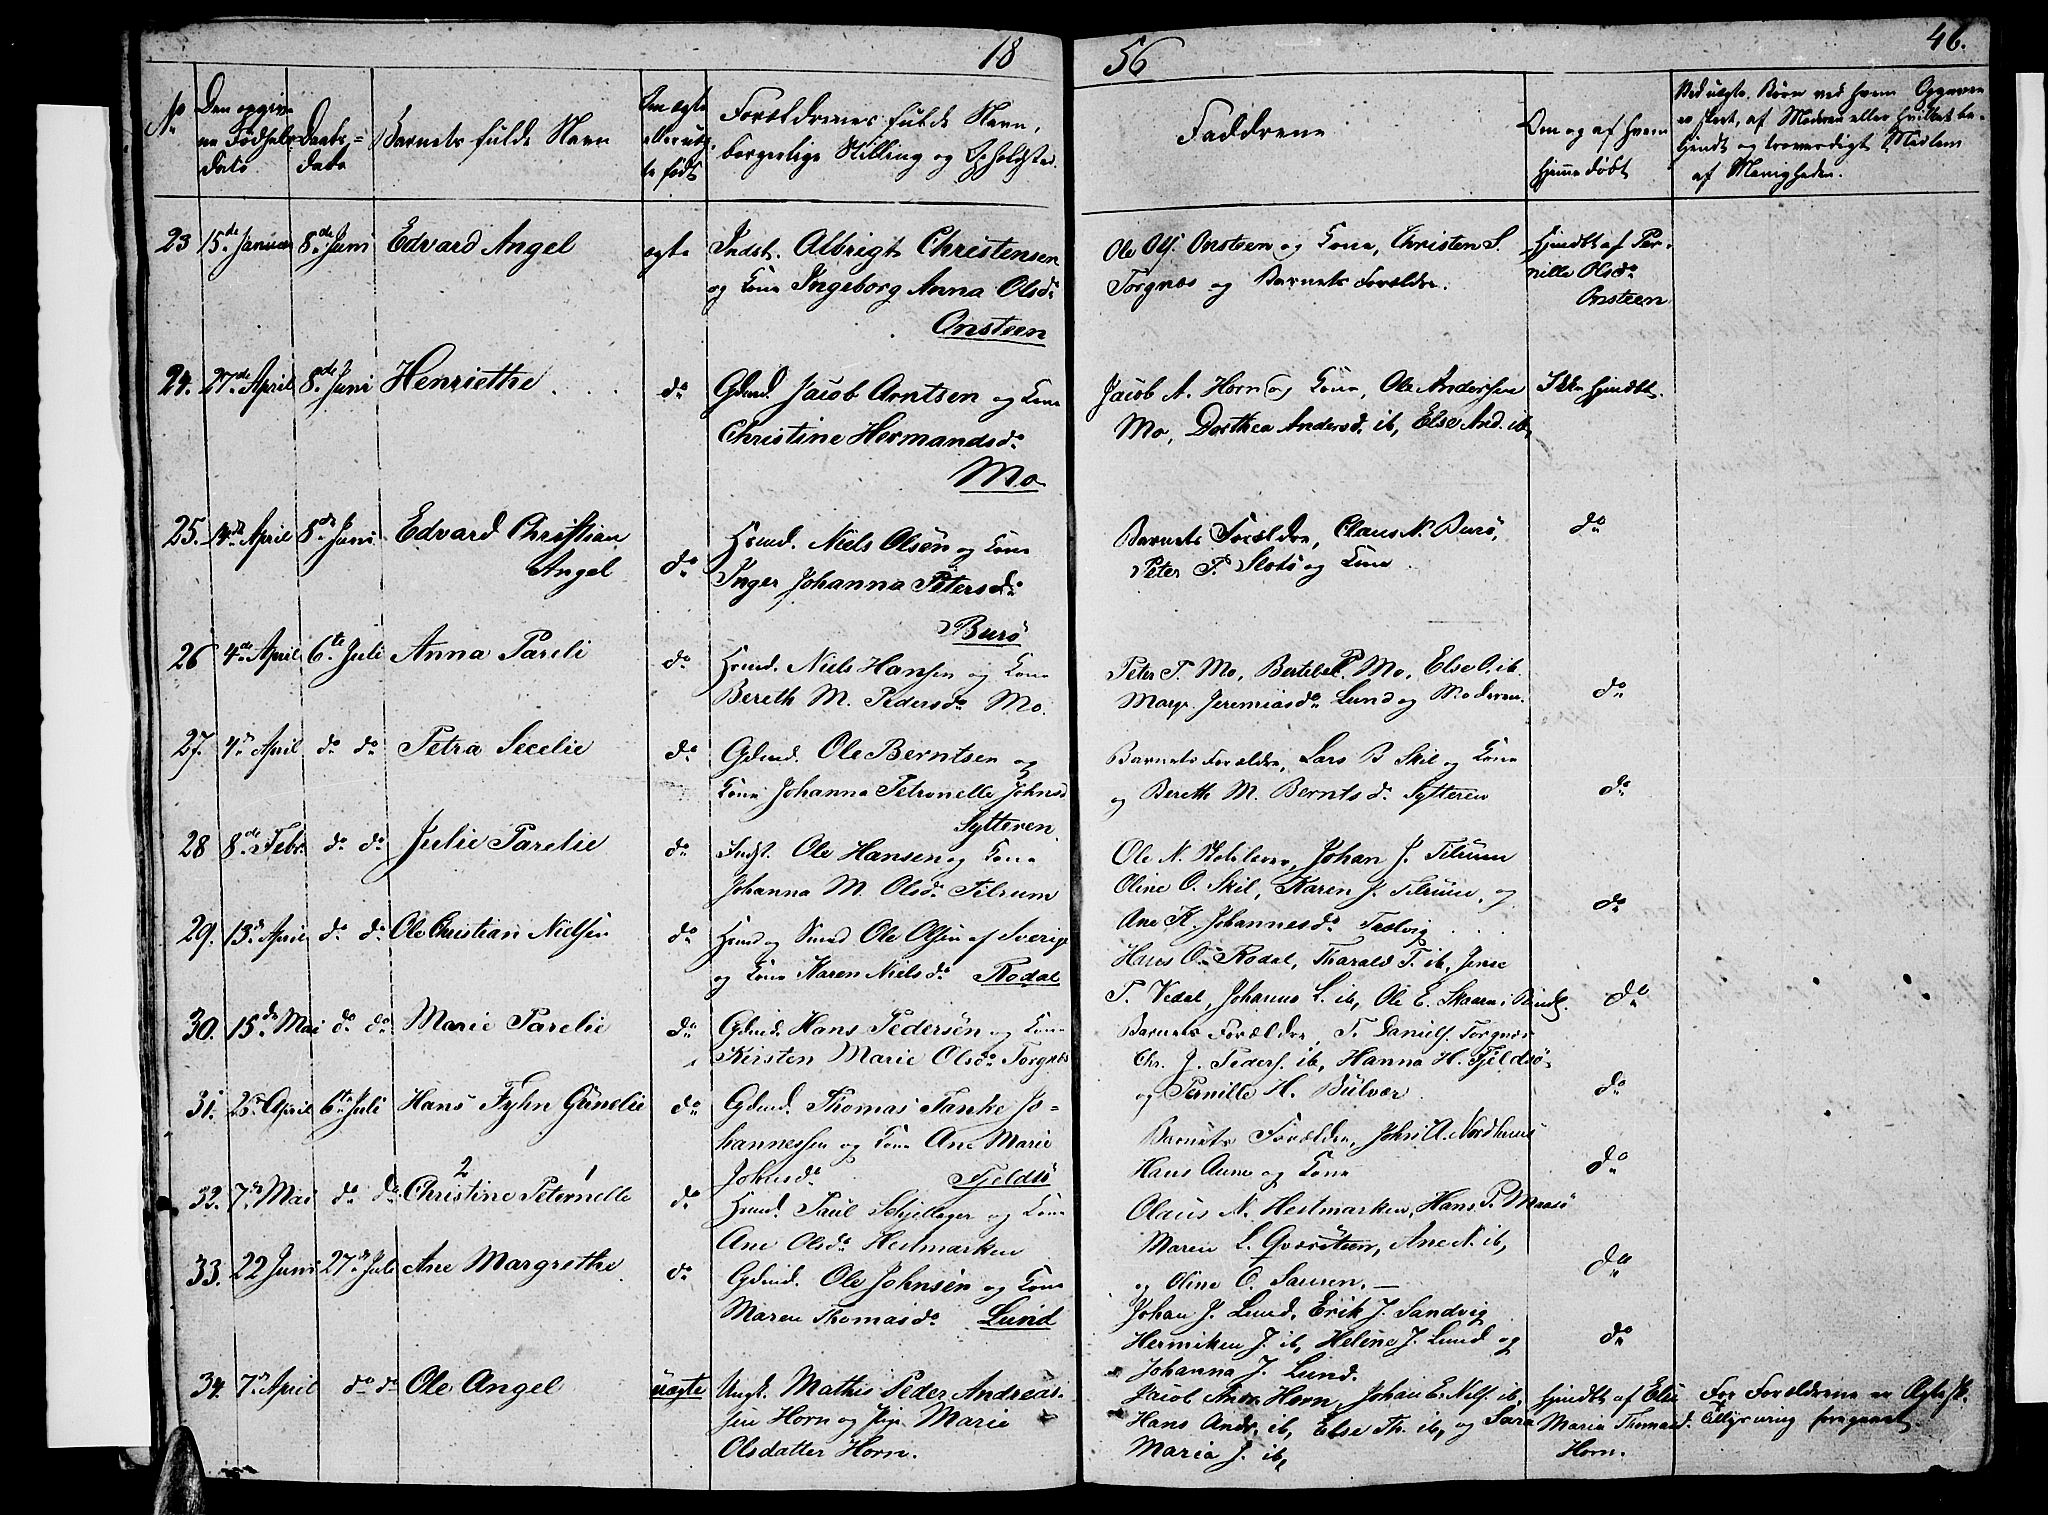 18
56
46.
No
Den opgiv-
ne Fødsels
Dato
Daabs-
dato
Barnets fulde Navn
Om ægte
eller uæg-
te født
Forældrenes fulde Navn,
borgerlige Stilling og Opholdsted.
Faddrene
Om og af hvem
hjemmedøbt
Ved uægte Børn ved hvem Opgaven
er skeet, af Moderen eller hvilket be-
kjendt og troværdigt Medlem
af Menigheden.
23 15de Januar 8de Juni Edvard Angel ægte Indst. Albrigt Christensen
og Kone Ingeborg Anna Olsd.
Onsteen
Ole Ols. Onsteen og Kone, Christen S.
Torgnæs og Barnets Forældre.
Hjmdbt af Per-
nille Olsd.
Onsteen
24. 27de April 8de Juni Henriethe do Gdmd. Jacob Arntsen og Kone
Christine Hermandsd.
Mo
Jacob A. Horn og Kone, Ole Andersen
Mo, Dorthea Andersd. ib, Else And. ib,
Ikke hjmdbt.
25. 14de April 8de Juni Edvard Christian
Angel
do Hmd. Niels Olsen og Kone
Inger Johanna Petersd.
Burø
Barnets Forældre, Claus N. Burø,
Peter P. Slotø og Kone
do
26 4de April 6te Juli Anna Pareli do Hmd. Niels Hansen og Kone
Bereth M. Pedersd. Mo.
Peter P. Mo, Bertibel P. Mo, Else O. ib.
Margr. Jeremiasd. Lund og Moderen.
do
27. 4de April do do Petra Secelie do Gdmd. Ole Berntsen og
Kone Johanna Petronelle Johnsd
Sytteren
Barnets Forældre, Lars B Skil og Kone
og Bereth M. Berntsd. Sytteren
do
28 8de Febr. do do Julie Parelie do Indst. Ole Hansen og Kone
Johanna M. Olsd. Tilrum
Ole N. Johan J. Tilrum
Oline O. Skil, Karen J. Tilrum, og
Ane K. Johannesd. Trælvig
do
29. 13de April do do Ole Christian Nielsen do Hmd og Smed Ole Olsen af Sverige
og Kone Karen Nielsd. Rodal
Hans O. Rodal, Tharald T. ib, Jense
T. Vedal, Johanna L. ib, Ole E. Skaaren i Bindl.
do
30. 15de Mai do do Marie Parelie do Gdmd. Hans Pedersen og Kone
Kirsten Marie Olsd. Torgnæs
Barnets Forældre, T. Daniels. Torgnæs
Chr. J. Peders. ib, Hanna H. Fjeldsø
og Pernille H. Bulvær
do
31. 25de April 6te Juli Hans Fyhn Gunelie do Gdmd. Thomas Tanke Jo-
hannessen og Kone Ane Marie
Johnsd. Fjeldsø
Barnets Forældre, John A. Nordhuus
Hans Aune og Kone
do
2 1
32. 7de Mai do do Christine Petronelle do Hmd. Paul Schjellager og Kone
Ane Olsd. Hestmarken
Olaus N. Hestmarken, Hans P. Maasø
Maren L. Qværsteen, Ane N. ib,
og Oline O. Sausen.
do
33. 22 Juni 27de Juli Ane Margrethe do Gdmd. Ole Johnsen og Kone
Maren Thomasd. Lund
Johan J. Lund, Erik J. Sandvig
Hermiken J. ib, Heline J. Lund og
Johanna J. Lund.
do
34. 7de April do do Ole Angel uægte Ungk. Mathis Peder Andreas-
sen Horn og Pige Marie
Olsdatter Horn.
Jacob Horn, Johan E. Nels. ib,
Hans Andr. ib, Else Th. ib, og Sara
Maria J. ib,
Hjmdbt af Else
Maria Thomasd.
Horn.
For Forældrene er Ægtesk.
Tillysning foregaaet